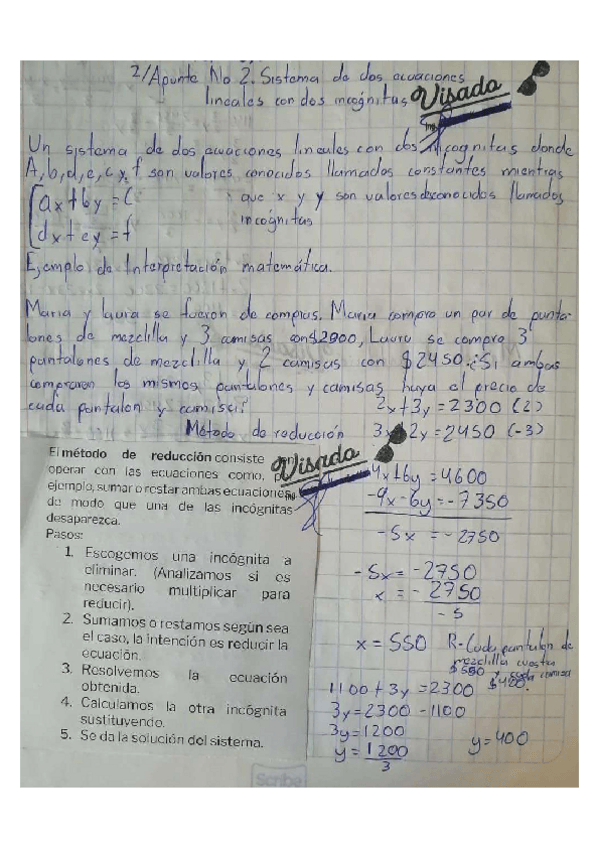 2/Apunte No 2. Sistema de dos ecuaciones
lineales con dos incógnitas
Visado
Ing.
Un sistema de dos ecuaciones lineales con dos incognitas donde
A, b, d, e, c y f son valores conocidos llamados constantes mientras
ax+by=C
que x y y son valores desconocidos llamados
dx+ey=f
incognitas
Ejemplo de Interpretación matemática.
Maria y laura se fueron de compras. Maria compro un par de panta-
lones de mezclilla y 3 camisas con $2300, Laura se compro 3
pantalones de mezclilla y 2 camisas con $2450. ¿Si ambas
compraron los mismos pantalones y camisas haya el precio de
cada pantalon y camisa?
2x+3y=2300 (2)
Método de reducción
3x+2y=2450 (-3)
El método de reducción consiste en
operar con las ecuaciones como, por
ejemplo, sumar o restar ambas ecuaciones,
de modo que una de las incógnitas
desaparezca.
Visado
Ing.
Pasos:
1. Escogemos una incógnita a
eliminar. (Analizamos si es
necesario multiplicar para
reducir).
2. Sumamos o restamos según sea
el caso, la intención es reducir la
ecuación.
3. Resolvemos la ecuación
obtenida.
4. Calculamos la otra incógnita
sustituyendo.
5. Se da la solución del sistema.
4x+6y=4600
-9x-6y=-7350
-5x = -2750
-5x = -2750
x = -2750
-5
x = 550
R-Cada pantalon de
mezclilla cuesta
$550 y cada camisa
$400.
1100+3y=2300
3y=2300-1100
3y=1200
y=1200
3
y=400
Scribe